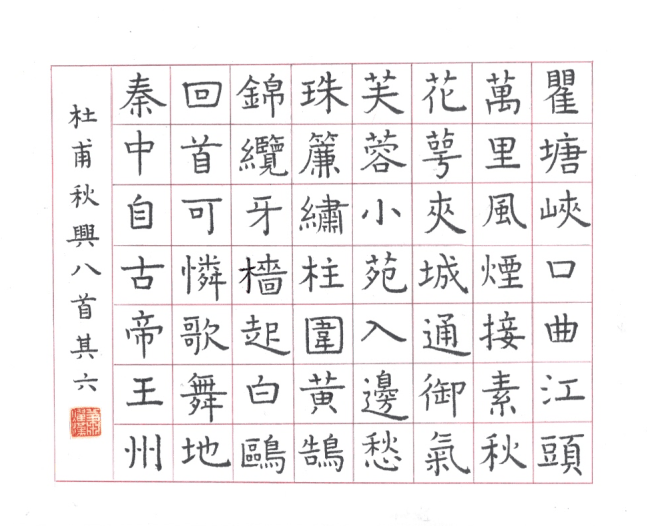 瞿塘峽口曲江頭
萬里風煙接素秋
花萼夾城通御氣
芙蓉小苑入邊愁
珠簾繡柱圍黃鵠
錦纜牙檣起白鷗
回首可憐歌舞地
秦中自古帝王州
杜甫秋興八首其六